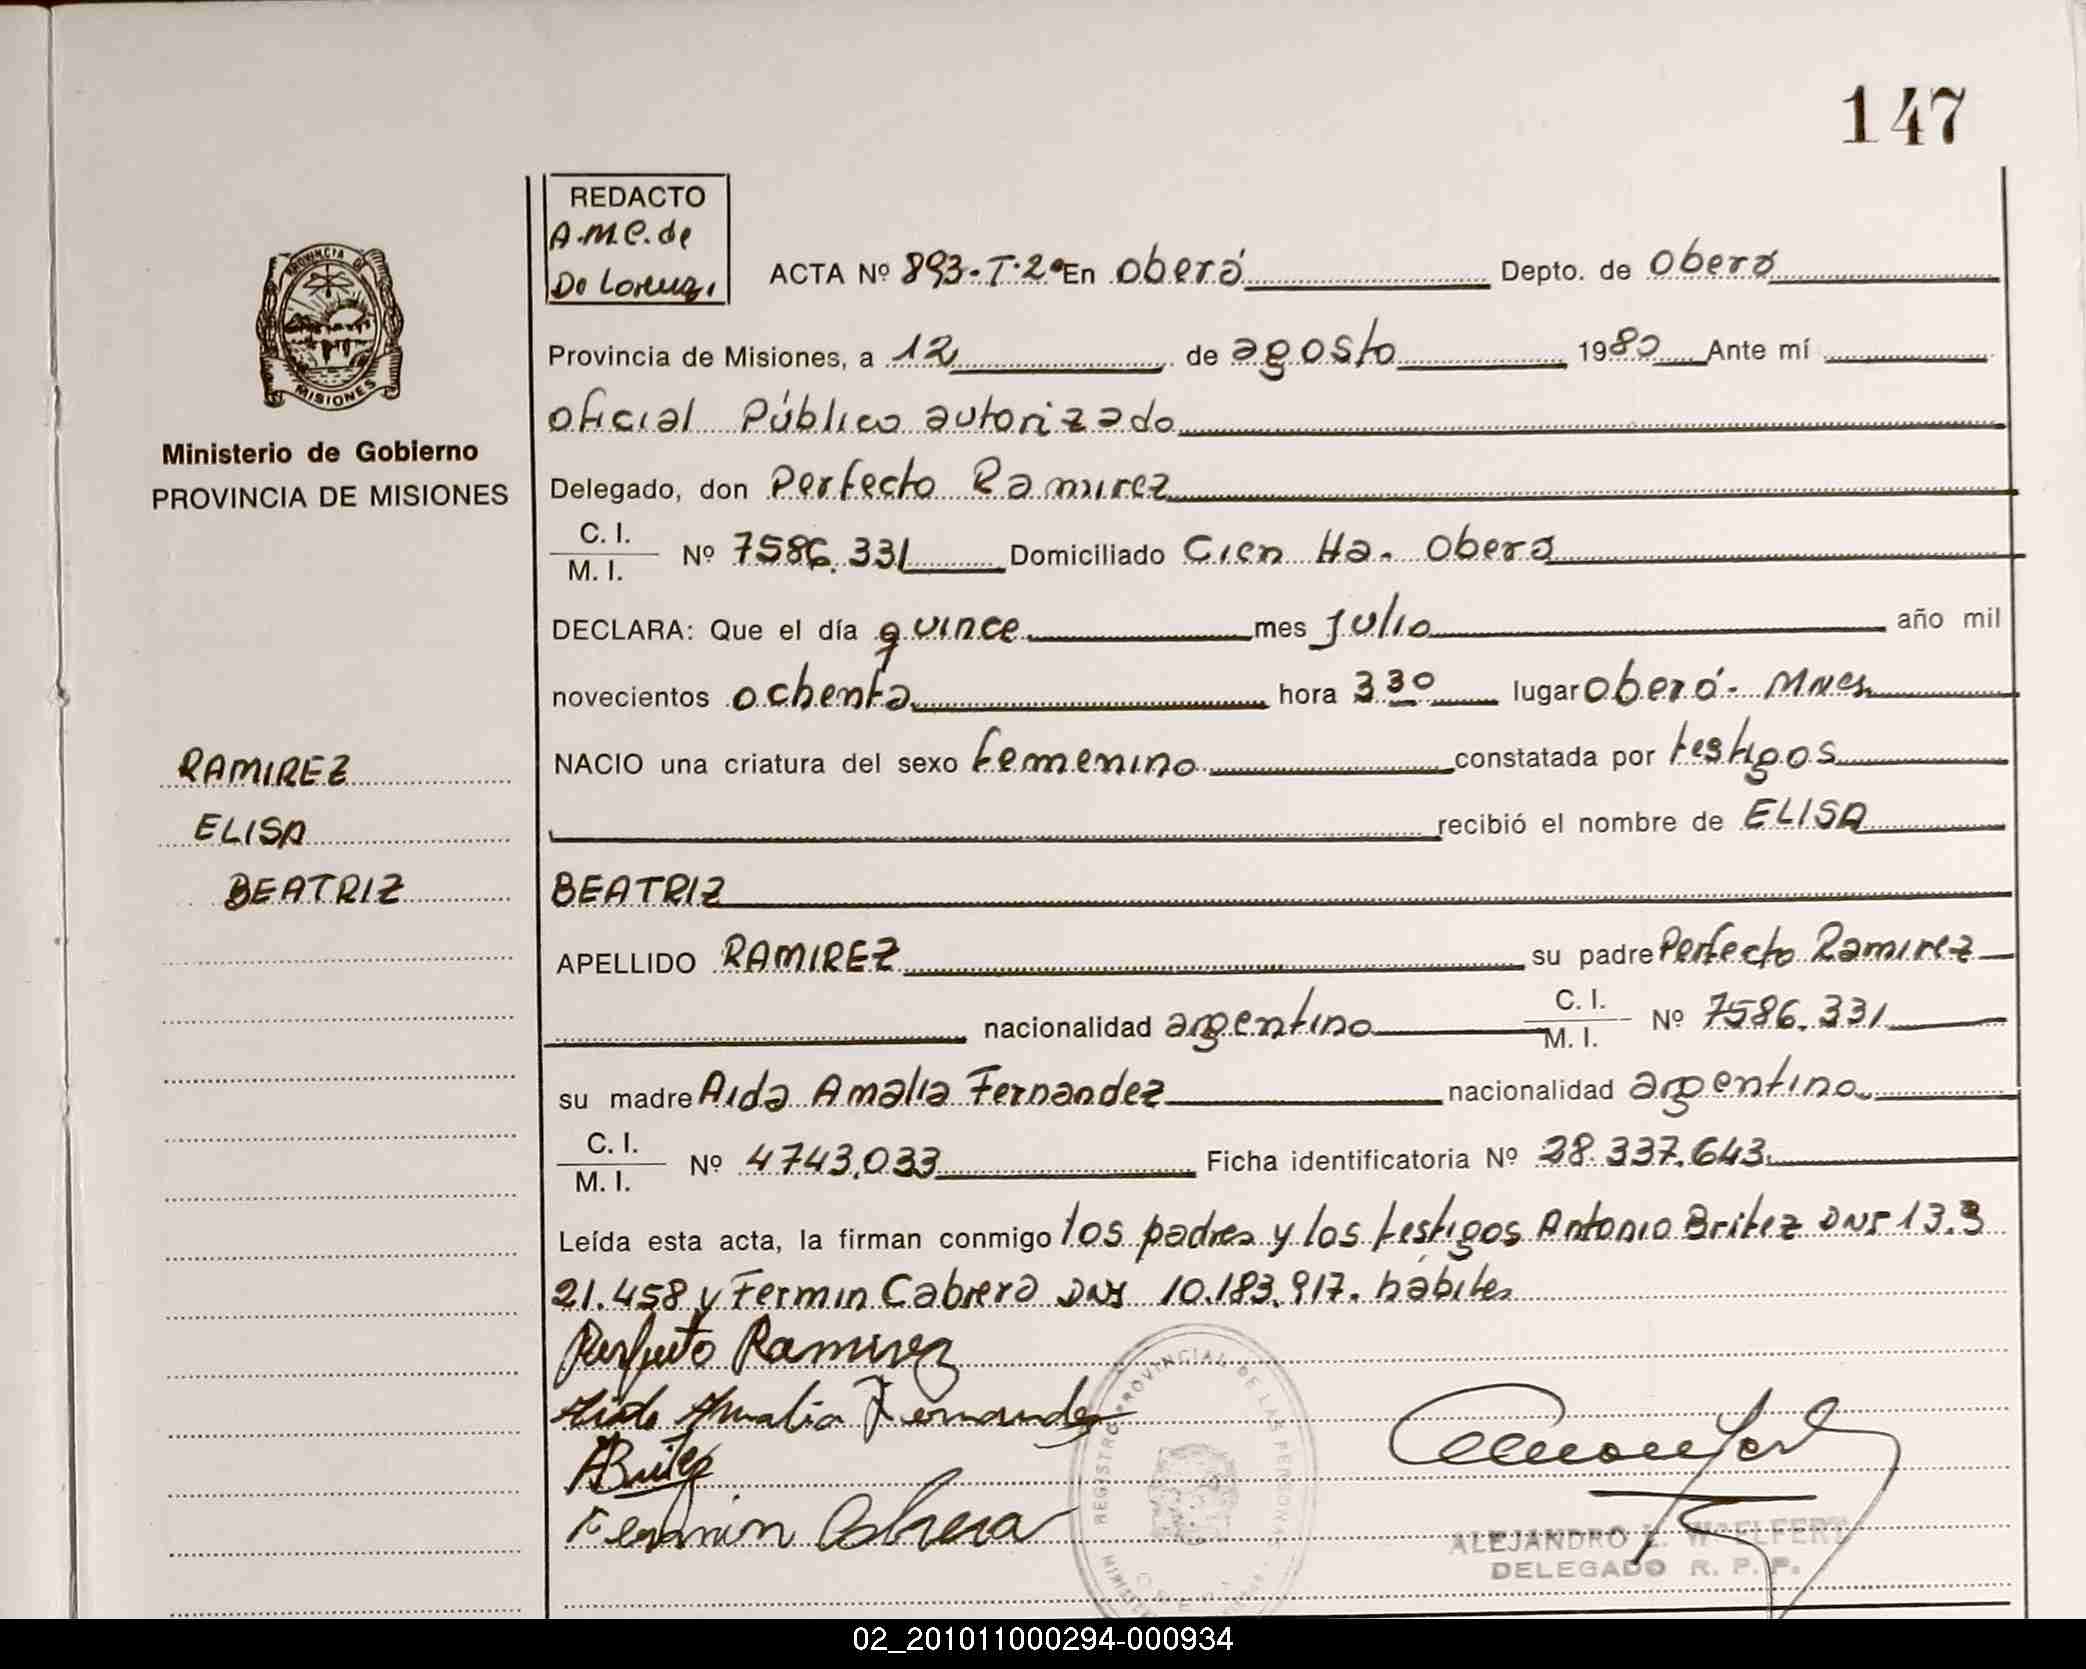 147
REDACTO
A.M.C. de
De Lorenzi
PROVINCIA DE
MISIONES
Ministerio de Gobierno
PROVINCIA DE MISIONES
ACTA Nº 893-T.2º En Oberá Depto. de Oberá
Provincia de Misiones, a 12 de agosto 1980 Ante mí
oficial Público autorizado
Delegado, don Perfecto Ramirez
C. I.
M. I. Nº 7586.331 Domiciliado Cien Ha. Oberá
DECLARA: Que el día quince mes Julio año mil
novecientos ochenta hora 3 30 lugar Oberá - Mnes
RAMIREZ
ELISA
BEATRIZ
NACIO una criatura del sexo femenino constatada por testigos
recibió el nombre de ELISA
BEATRIZ
APELLIDO RAMIREZ su padre Perfecto Ramirez
nacionalidad argentino C. I. M. I. Nº 7586.331
su madre Aida Amalia Fernandez nacionalidad argentino
C. I.
M. I. Nº 4743.033 Ficha identificatoria Nº 28.337.643
Leída esta acta, la firman conmigo los padres y los testigos Antonio Britez DNI 13.3
21.458 y Fermin Cabrera DNI 10.183.917. hábiles
Perfecto Ramirez
Aida Amalia Fernandez
ABritez
Fermin Cabrera
REGISTRO PROVINCIAL DE LAS PERSONAS
ALEJANDRO L. WOELFERT
DELEGADO R. P. P.
02_201011000294-000934